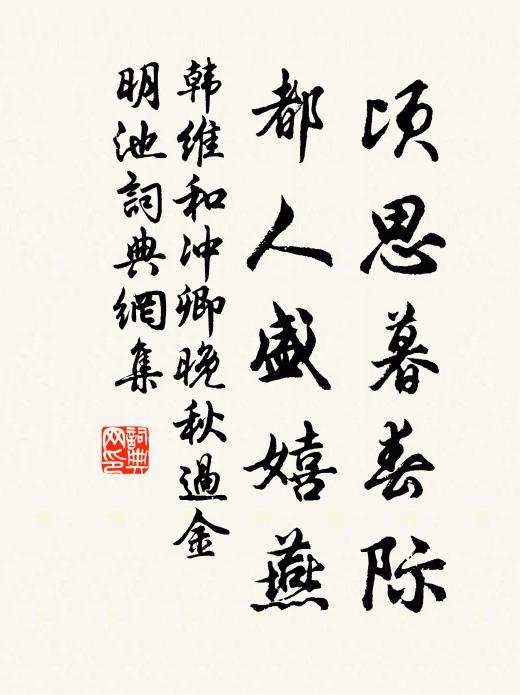 顷思暮春际
都人盛嬉燕
韩维和冲卿晚秋過金
明池詞典網集
詞典
网印